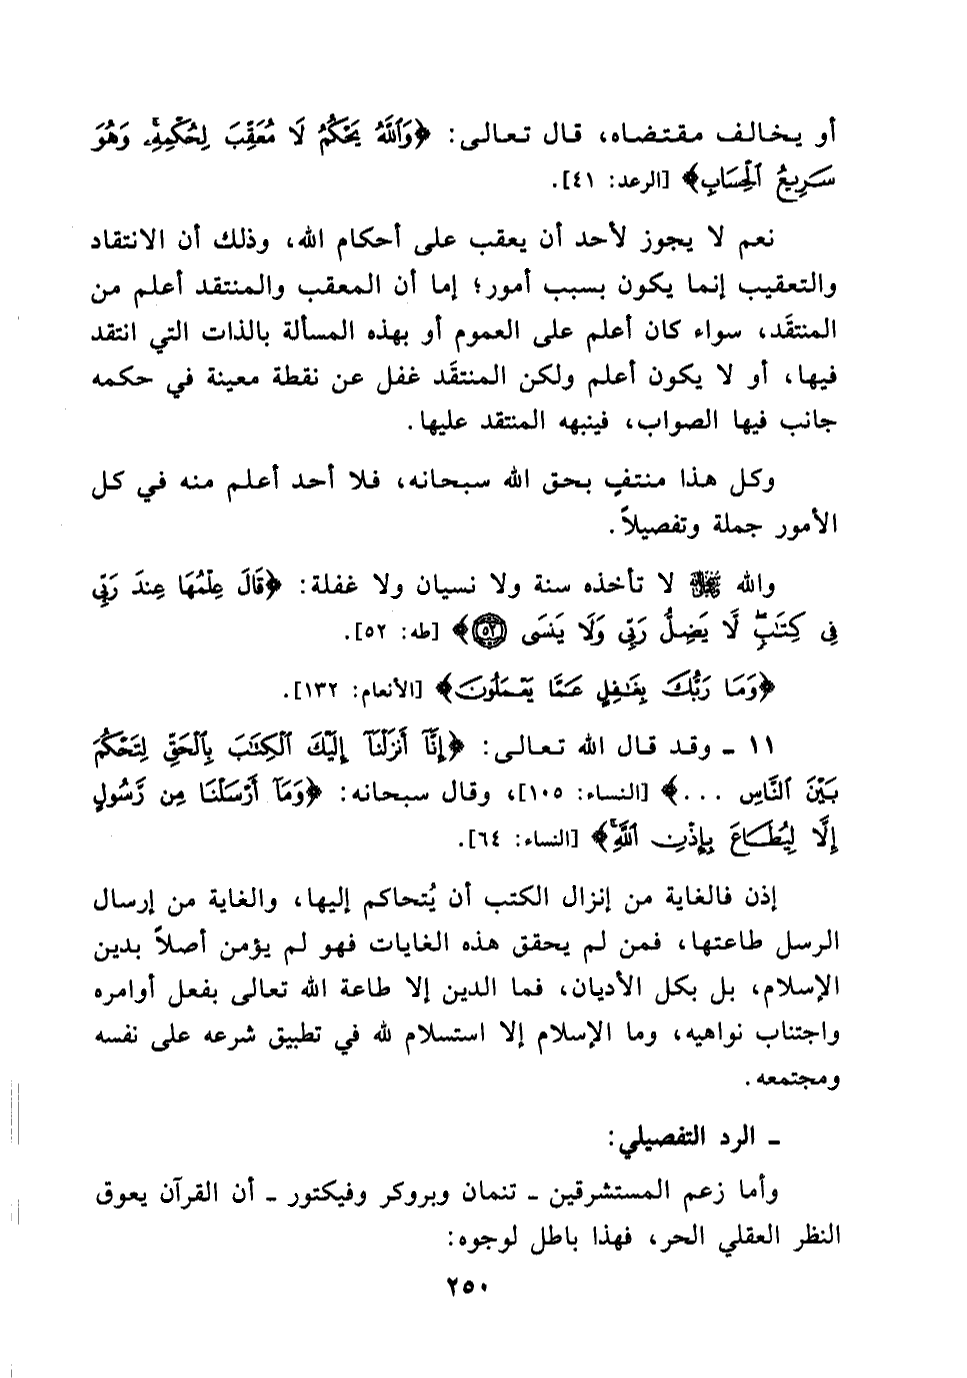 أو يخالف مقتضاه، قال تعالى: ﴿وَٱللَّهُ يَحْكُمُ لَا مُعَقِّبَ لِحُكْمِهِۦۚ وَهُوَ
سَرِيعُ ٱلْحِسَابِ﴾ [الرعد: ٤١].
نعم لا يجوز لأحد أن يعقب على أحكام الله، وذلك أن الانتقاد
والتعقيب إنما يكون بسبب أمور؛ إما أن المعقب والمنتقد أعلم من
المنتقَد، سواء كان أعلم على العموم أو بهذه المسألة بالذات التي انتقد
فيها، أو لا يكون أعلم ولكن المنتقَد غفل عن نقطة معينة في حكمه
جانب فيها الصواب، فينبهه المنتقد عليها.
وكل هذا منتفٍ بحق الله سبحانه، فلا أحد أعلم منه في كل
الأمور جملة وتفصيلاً.
والله ﷻ لا تأخذه سنة ولا نسيان ولا غفلة: ﴿قَالَ عِلْمُهَا عِندَ رَبِّى
فِى كِتَٰبٍۖ لَّا يَضِلُّ رَبِّى وَلَا يَنسَى ٥٢﴾ [طه: ٥٢].
﴿وَمَا رَبُّكَ بِغَٰفِلٍ عَمَّا يَعْمَلُونَ﴾ [الأنعام: ١٣٢].
١١ ـ وقد قال الله تعالى: ﴿إِنَّآ أَنزَلْنَآ إِلَيْكَ ٱلْكِتَٰبَ بِٱلْحَقِّ لِتَحْكُمَ
بَيْنَ ٱلنَّاسِ ...﴾ [النساء: ١٠٥]، وقال سبحانه: ﴿وَمَآ أَرْسَلْنَا مِن رَّسُولٍ
إِلَّا لِيُطَاعَ بِإِذْنِ ٱللَّهِۚ﴾ [النساء: ٦٤].
إذن فالغاية من إنزال الكتب أن يُتحاكم إليها، والغاية من إرسال
الرسل طاعتها، فمن لم يحقق هذه الغايات فهو لم يؤمن أصلاً بدين
الإسلام، بل بكل الأديان، فما الدين إلا طاعة الله تعالى بفعل أوامره
واجتناب نواهيه، وما الإسلام إلا استسلام لله في تطبيق شرعه على نفسه
ومجتمعه.
ـ الرد التفصيلي:
وأما زعم المستشرقين ـ تنمان وبروكر وفيكتور ـ أن القرآن يعوق
النظر العقلي الحر، فهذا باطل لوجوه:
٢٥٠